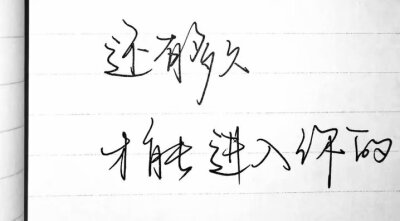 还有多久
才能进入你的